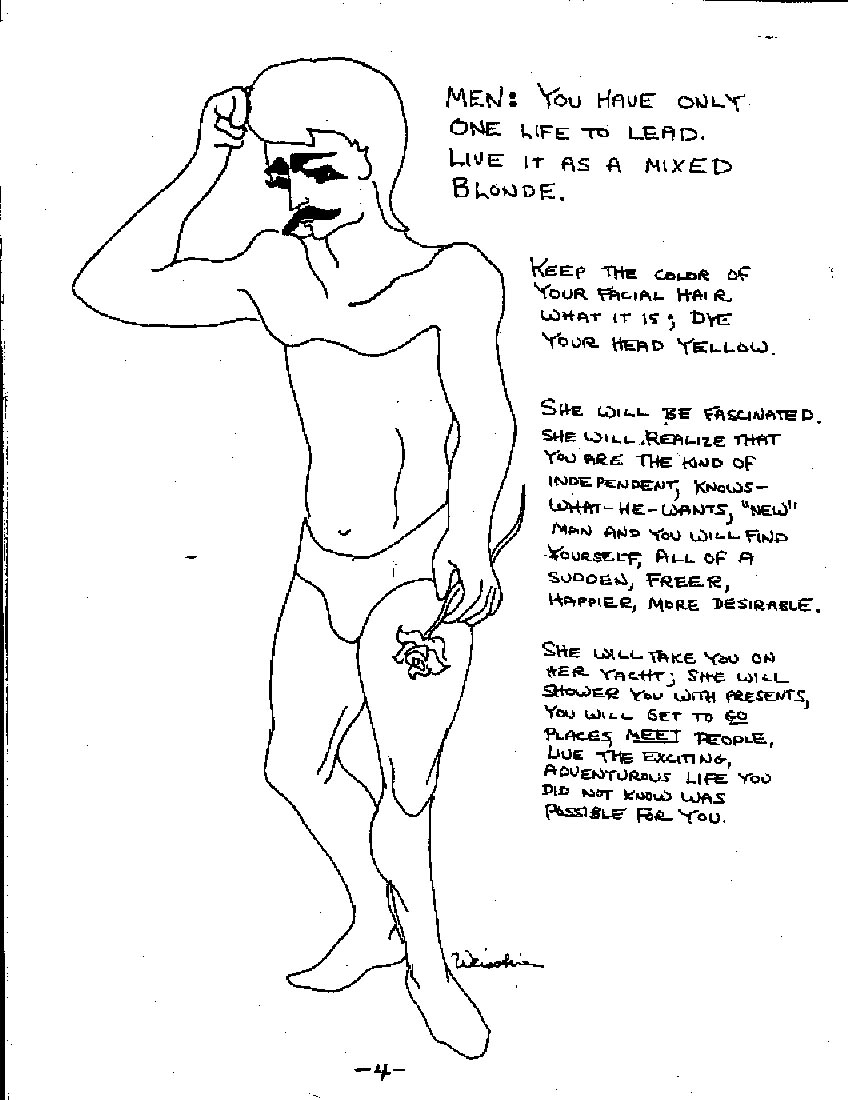 MEN: YOU HAVE ONLY
ONE LIFE TO LEAD.
LIVE IT AS A MIXED
BLONDE.
KEEP THE COLOR OF
YOUR FACIAL HAIR
WHAT IT IS; DYE
YOUR HEAD YELLOW.
SHE WILL BE FASCINATED.
SHE WILL REALIZE THAT
YOU ARE THE KIND OF
INDEPENDENT, KNOWS-
WHAT-HE-WANTS, "NEW"
MAN AND YOU WILL FIND
YOURSELF, ALL OF A
SUDDEN, FREER,
HAPPIER, MORE DESIRABLE.
SHE WILL TAKE YOU ON
HER YACHT; SHE WILL
SHOWER YOU WITH PRESENTS,
YOU WILL GET TO GO
PLACES, MEET PEOPLE,
LIVE THE EXCITING,
ADVENTUROUS LIFE YOU
DID NOT KNOW WAS
POSSIBLE FOR YOU.
-4-